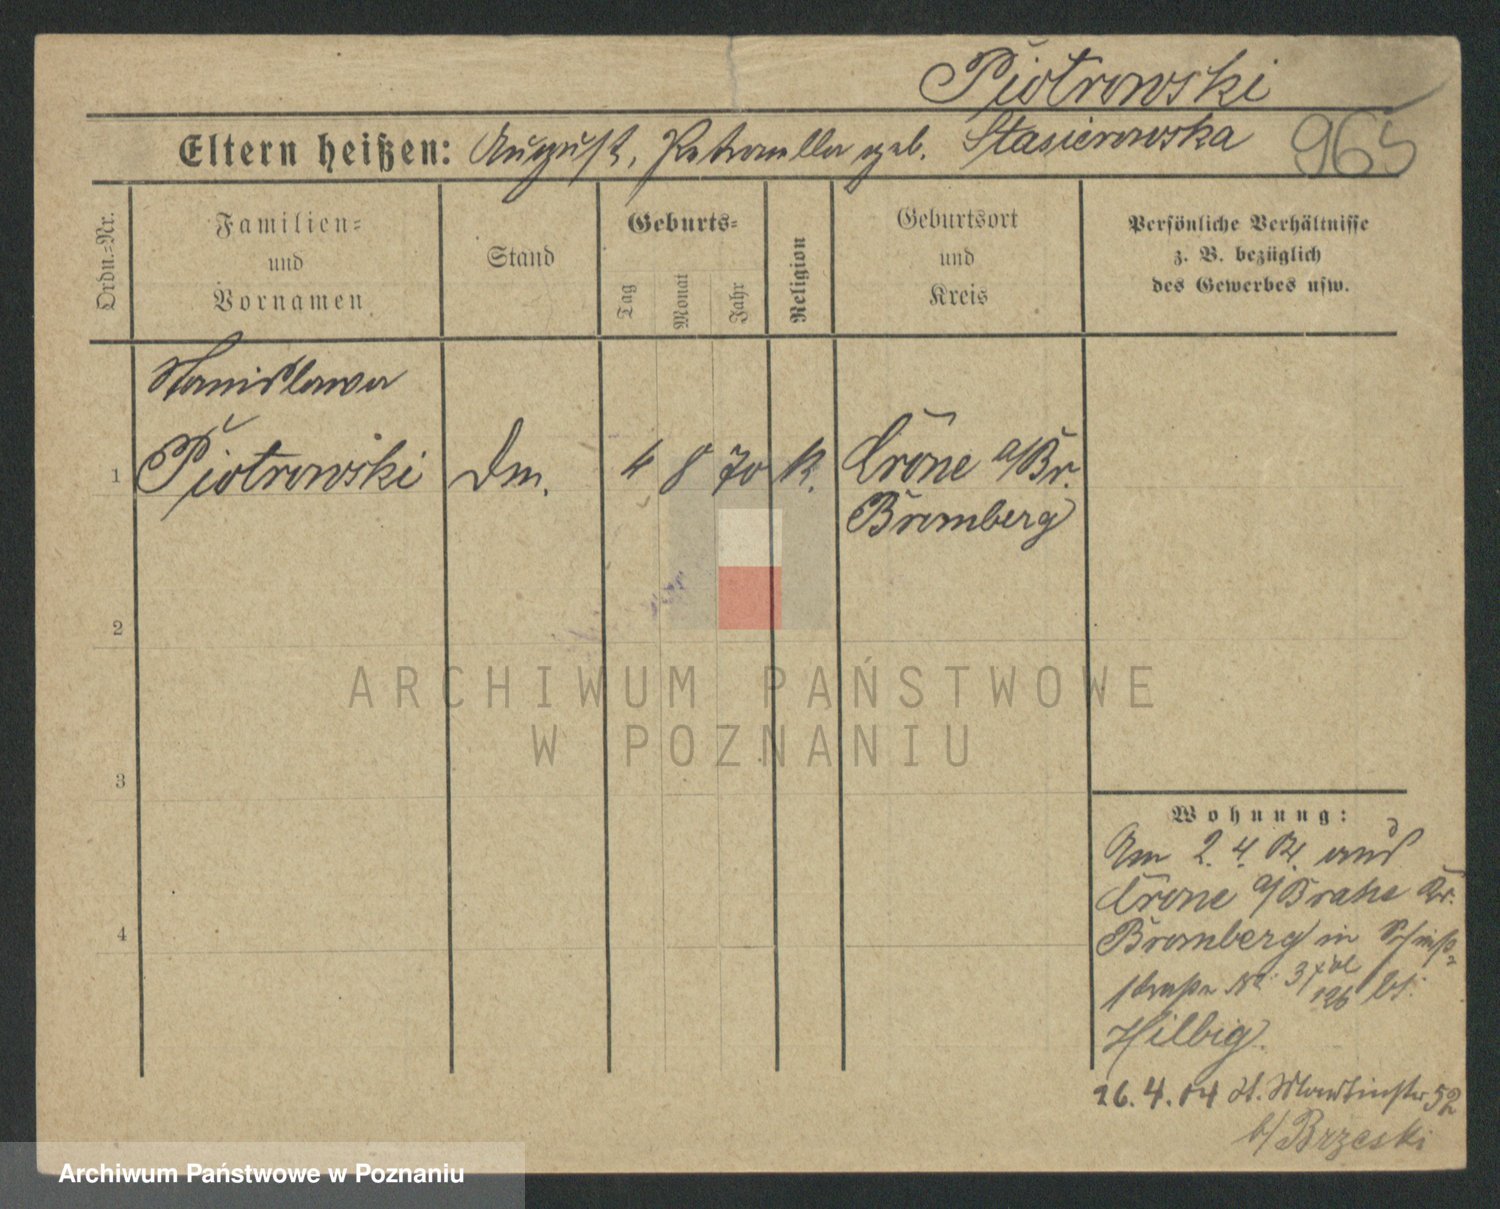 Piotrowski
Eltern heißen: August, Petronella geb. Stasierowska
965
Ordn.-Nr.
Familien-
und
Vornamen
Stand
Geburts-
Tag
Monat
Jahr
Religion
Geburtsort
und
Kreis
Persönliche Verhältnisse
z. B. bezüglich
des Gewerbes usw.
Stanislawa
1 Piotrowski Dm. 4 8 70 K. Crone a/Br.
Bromberg
2
3
4
ARCHIWUM PAŃSTWOWE
W POZNANIU
Wohnung:
Am 2. 4. 04. aus
Crone a/Brahe Kr.
Bromberg in
straße No: 37 bei
Hilbig.
26. 4. 04 St. Martinstr 52
b/ Brzeski
Archiwum Państwowe w Poznaniu